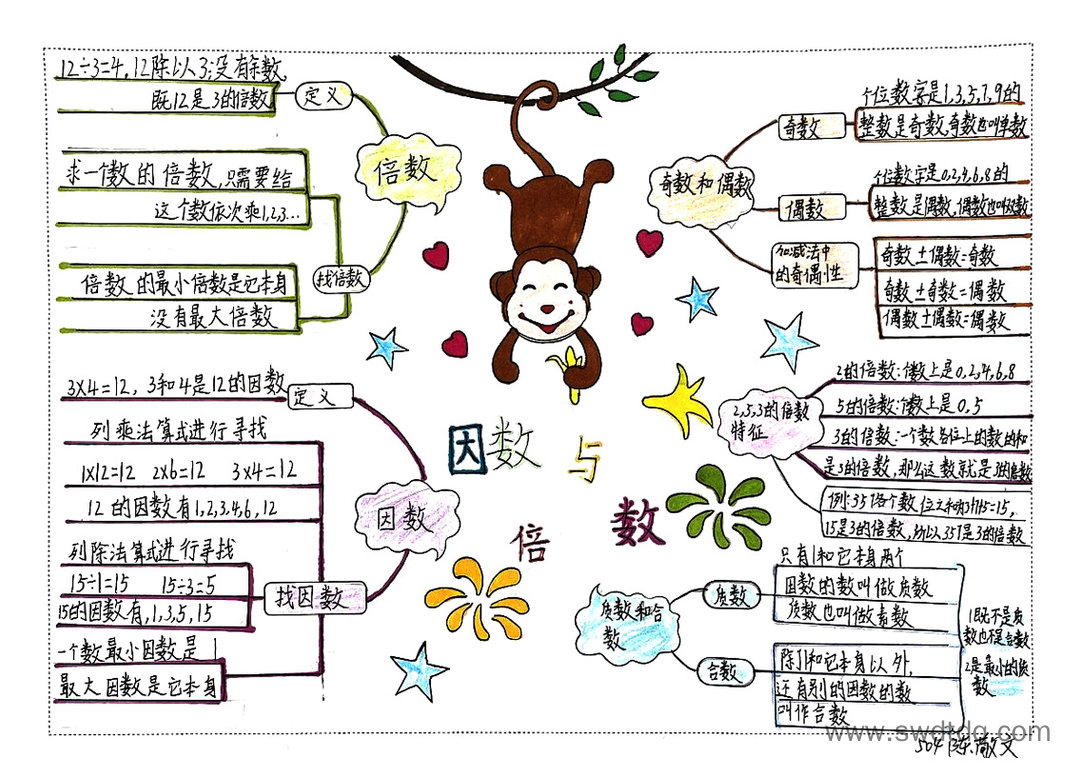 12÷3=4,12除以3没有余数,
既12是3的倍数
定义
倍数
求一个数的倍数,只需要给
这个数依次乘1,2,3...
找倍数
倍数的最小倍数是它本身
没有最大倍数
3×4=12, 3和4是12的因数
定义
列乘法算式进行寻找
1×12=12 2×6=12 3×4=12
12的因数有1,2,3,4,6,12
因数
列除法算式进行寻找
15÷1=15 15÷3=5
15的因数有,1,3,5,15
找因数
一个数最小因数是1
最大因数是它本身
因数
与
倍
数
奇数和偶数
奇数
个位数字是1,3,5,7,9的
整数是奇数,奇数也叫单数
偶数
个位数字是0,2,4,6,8的
整数是偶数,偶数也叫双数
加减法中
的奇偶性
奇数±偶数=奇数
奇数±奇数=偶数
偶数±偶数=偶数
2,5,3的倍数
特征
2的倍数:个数上是0,2,4,6,8
5的倍数:个数上是0,5
3的倍数:一个数各位上的数的和
是3的倍数,那么这数就是3的倍数
15是3的倍数,所以357是3的倍数
质数和合
数
质数
只有1和它本身两个
因数的数叫做质数
质数也叫做素数
合数
除了1和它本身以外,
还有别的因数的数
叫作合数
1既不是质
数也不是合数
2是最小的质
数
www.swdtdq.com
504 陈